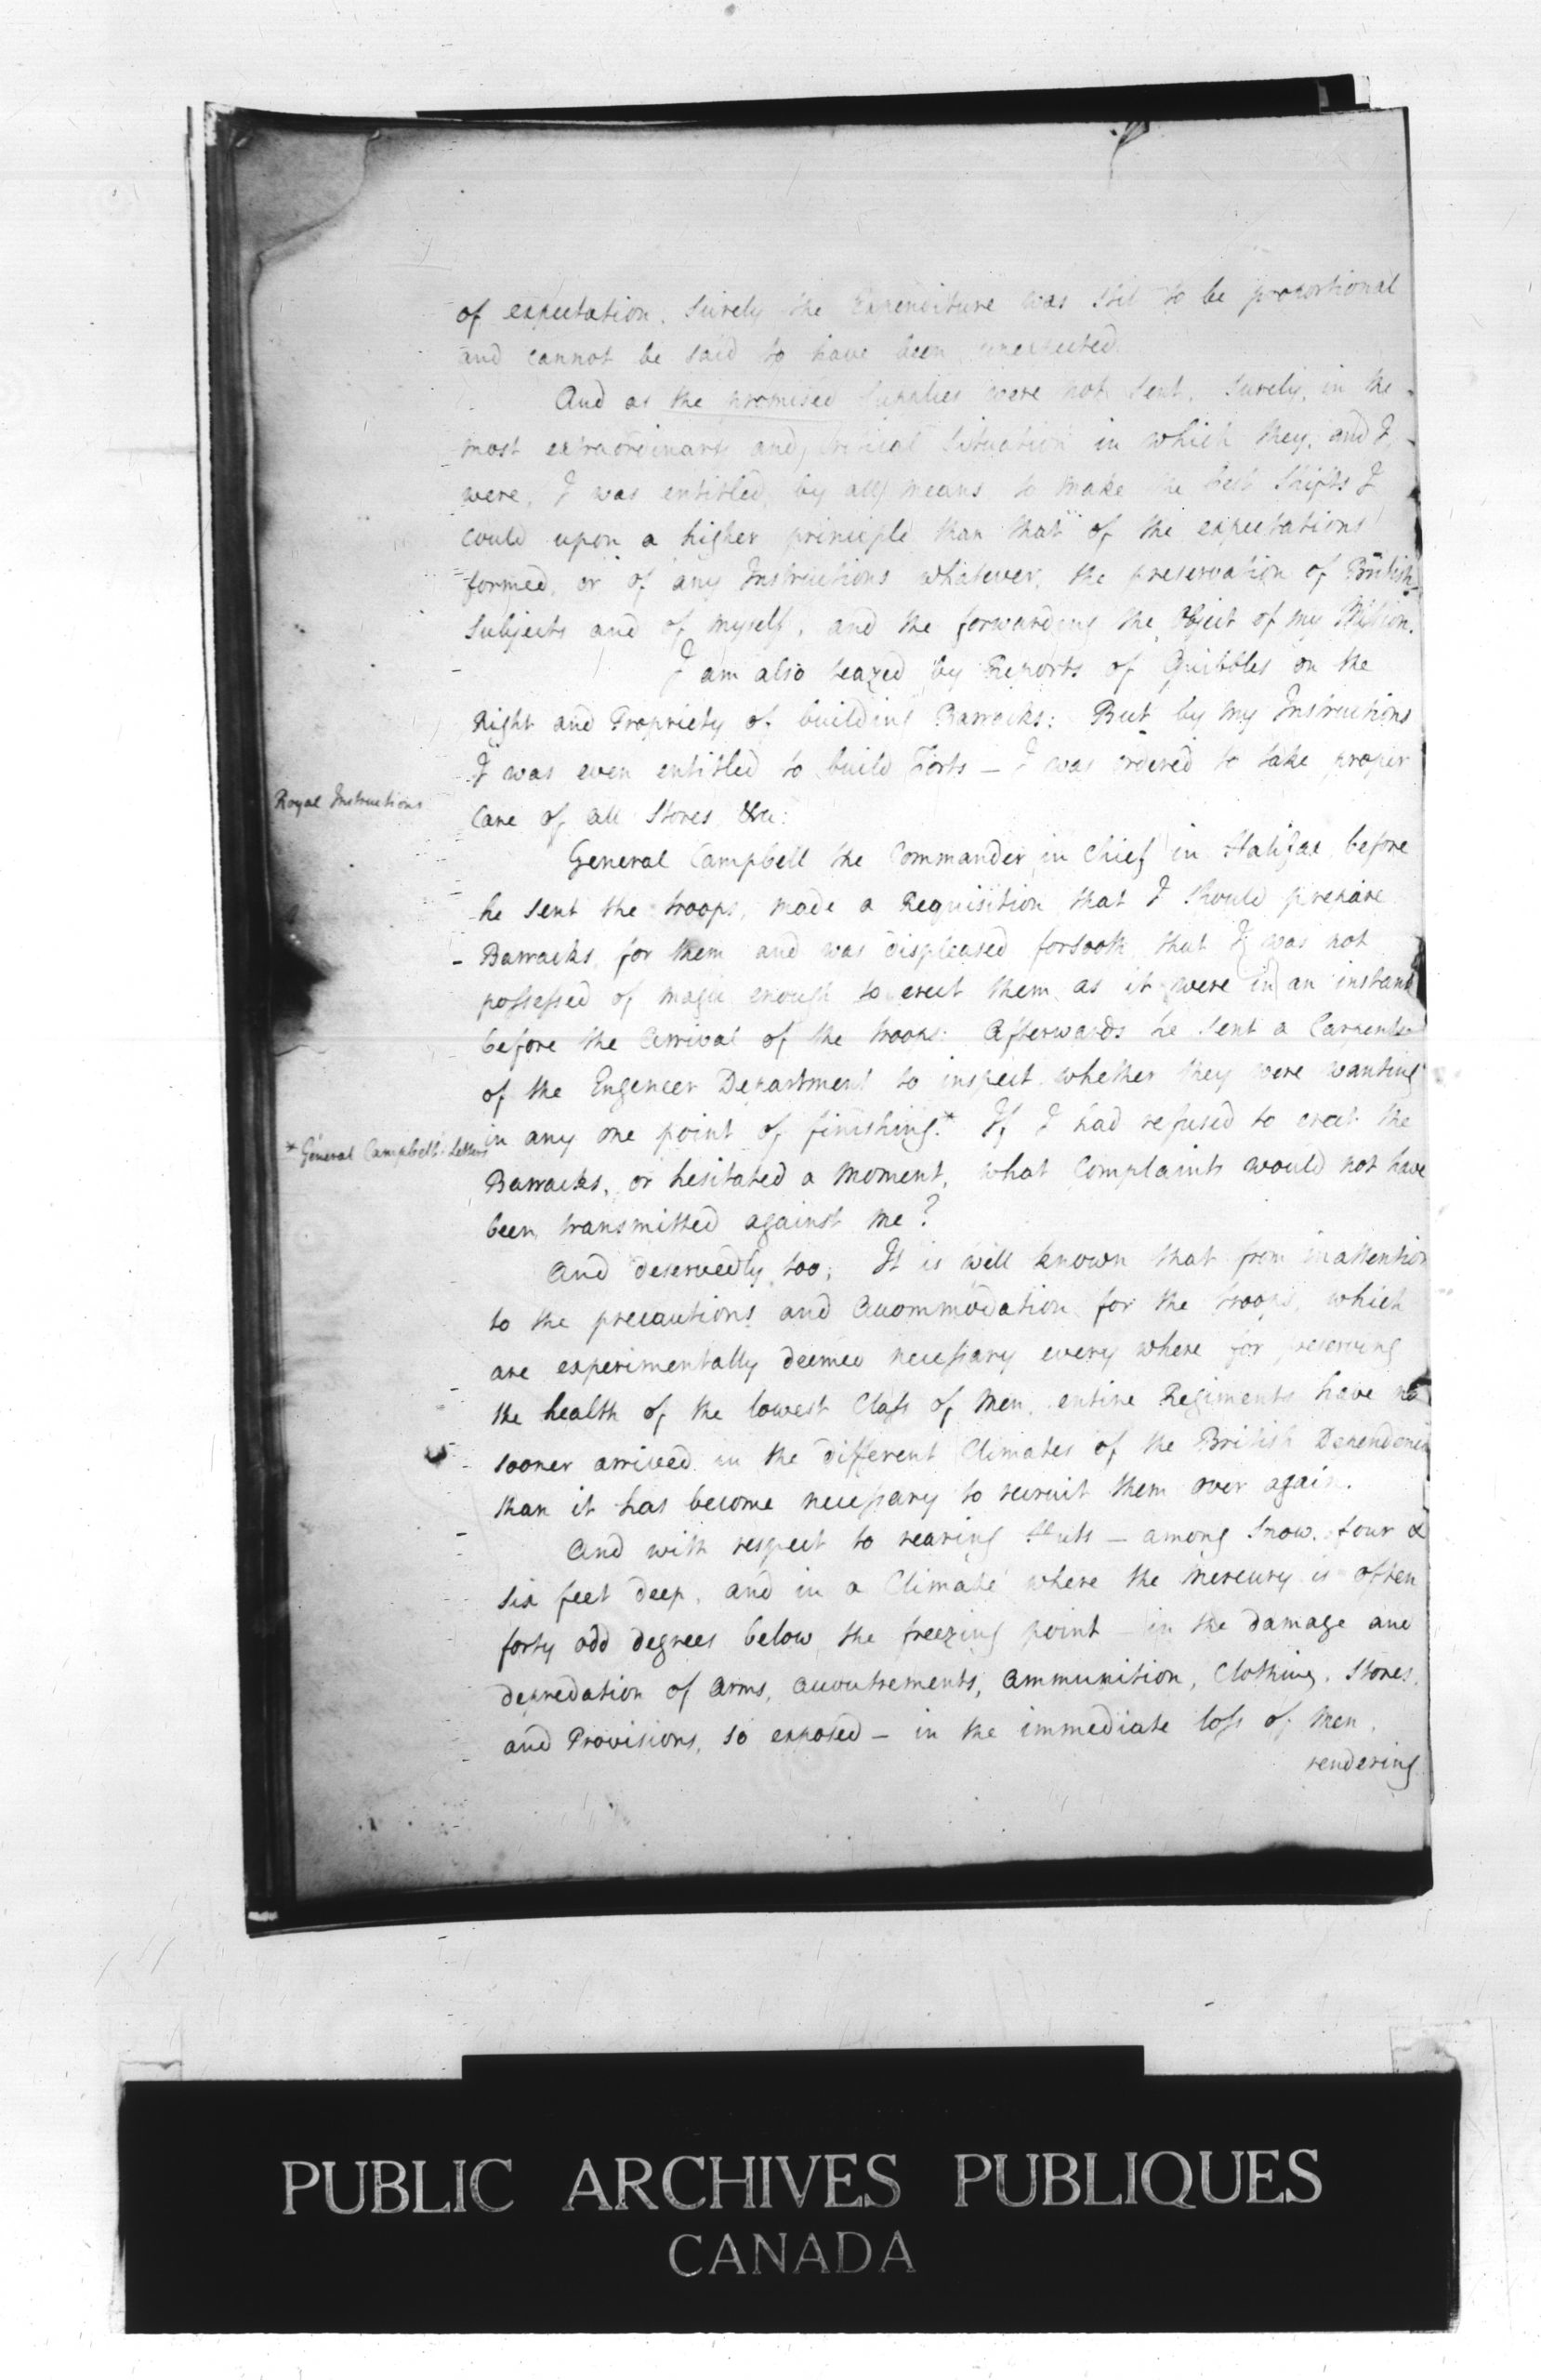 of expectation. Surely the Expenditure was still to be proportional
and cannot be said to have been unexpected.
And as the promised Supplies were not sent, surely, in the
most extraordinary and critical Situation in which they, and I,
were, I was entitled, by all means, to make the best Shifts I
could upon a higher principle than that of the expectations
formed, or of any Instructions whatever, the preservation of British
Subjects and of myself, and the forwarding the Object of my Mission.
I am also teazed by Reports of Quibbles on the
Right and Propriety of building Barracks: But by my Instructions
I was even entitled to build Forts — I was ordered to take proper
Royal Instructions
Care of all Stores &ca:
General Campbell the Commander in Chief in Halifax before
he sent the troops, made a Requisition that I should prepare
Barracks for them and was displeased forsooth that I was not
possessed of magic enough to erect them as it were in an instant
before the Arrival of the troops: Afterwards he sent a Carpenter
of the Engeneer Department to inspect whether they were wanting
in any one point of finishing.* If I had refused to erect the
* General Campbell's Letters
Barracks, or hesitated a moment, what Complaints would not have
been transmitted against me?
And deservedly too; It is well known that from inattention
to the precautions and Accommodation for the troops, which
are experimentally deemed necessary every where for preserving
the health of the lowest Class of Men, entire Regiments have no
sooner arrived in the different Climates of the British Dependencies
than it has become necessary to recruit them over again.
And with respect to rearing Huts — among Snow, four &
six feet deep, and in a Climate where the Mercury is often
forty odd degrees below the freezing point — in the damage and
depredation of Arms, Accoutrements, Ammunition, Clothing, Stores,
and Provisions, so exposed — in the immediate loss of Men,
rendering
PUBLIC ARCHIVES PUBLIQUES
CANADA